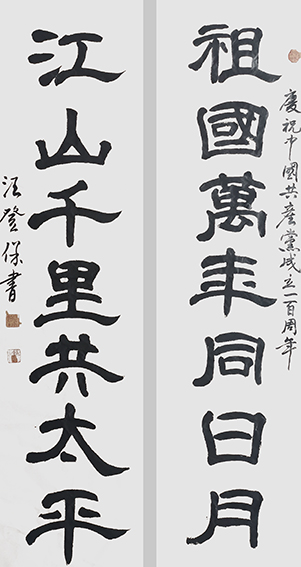 慶祝中國共產黨成立一百周年
祖國萬年同日月
江山千里共太平
汪登保書